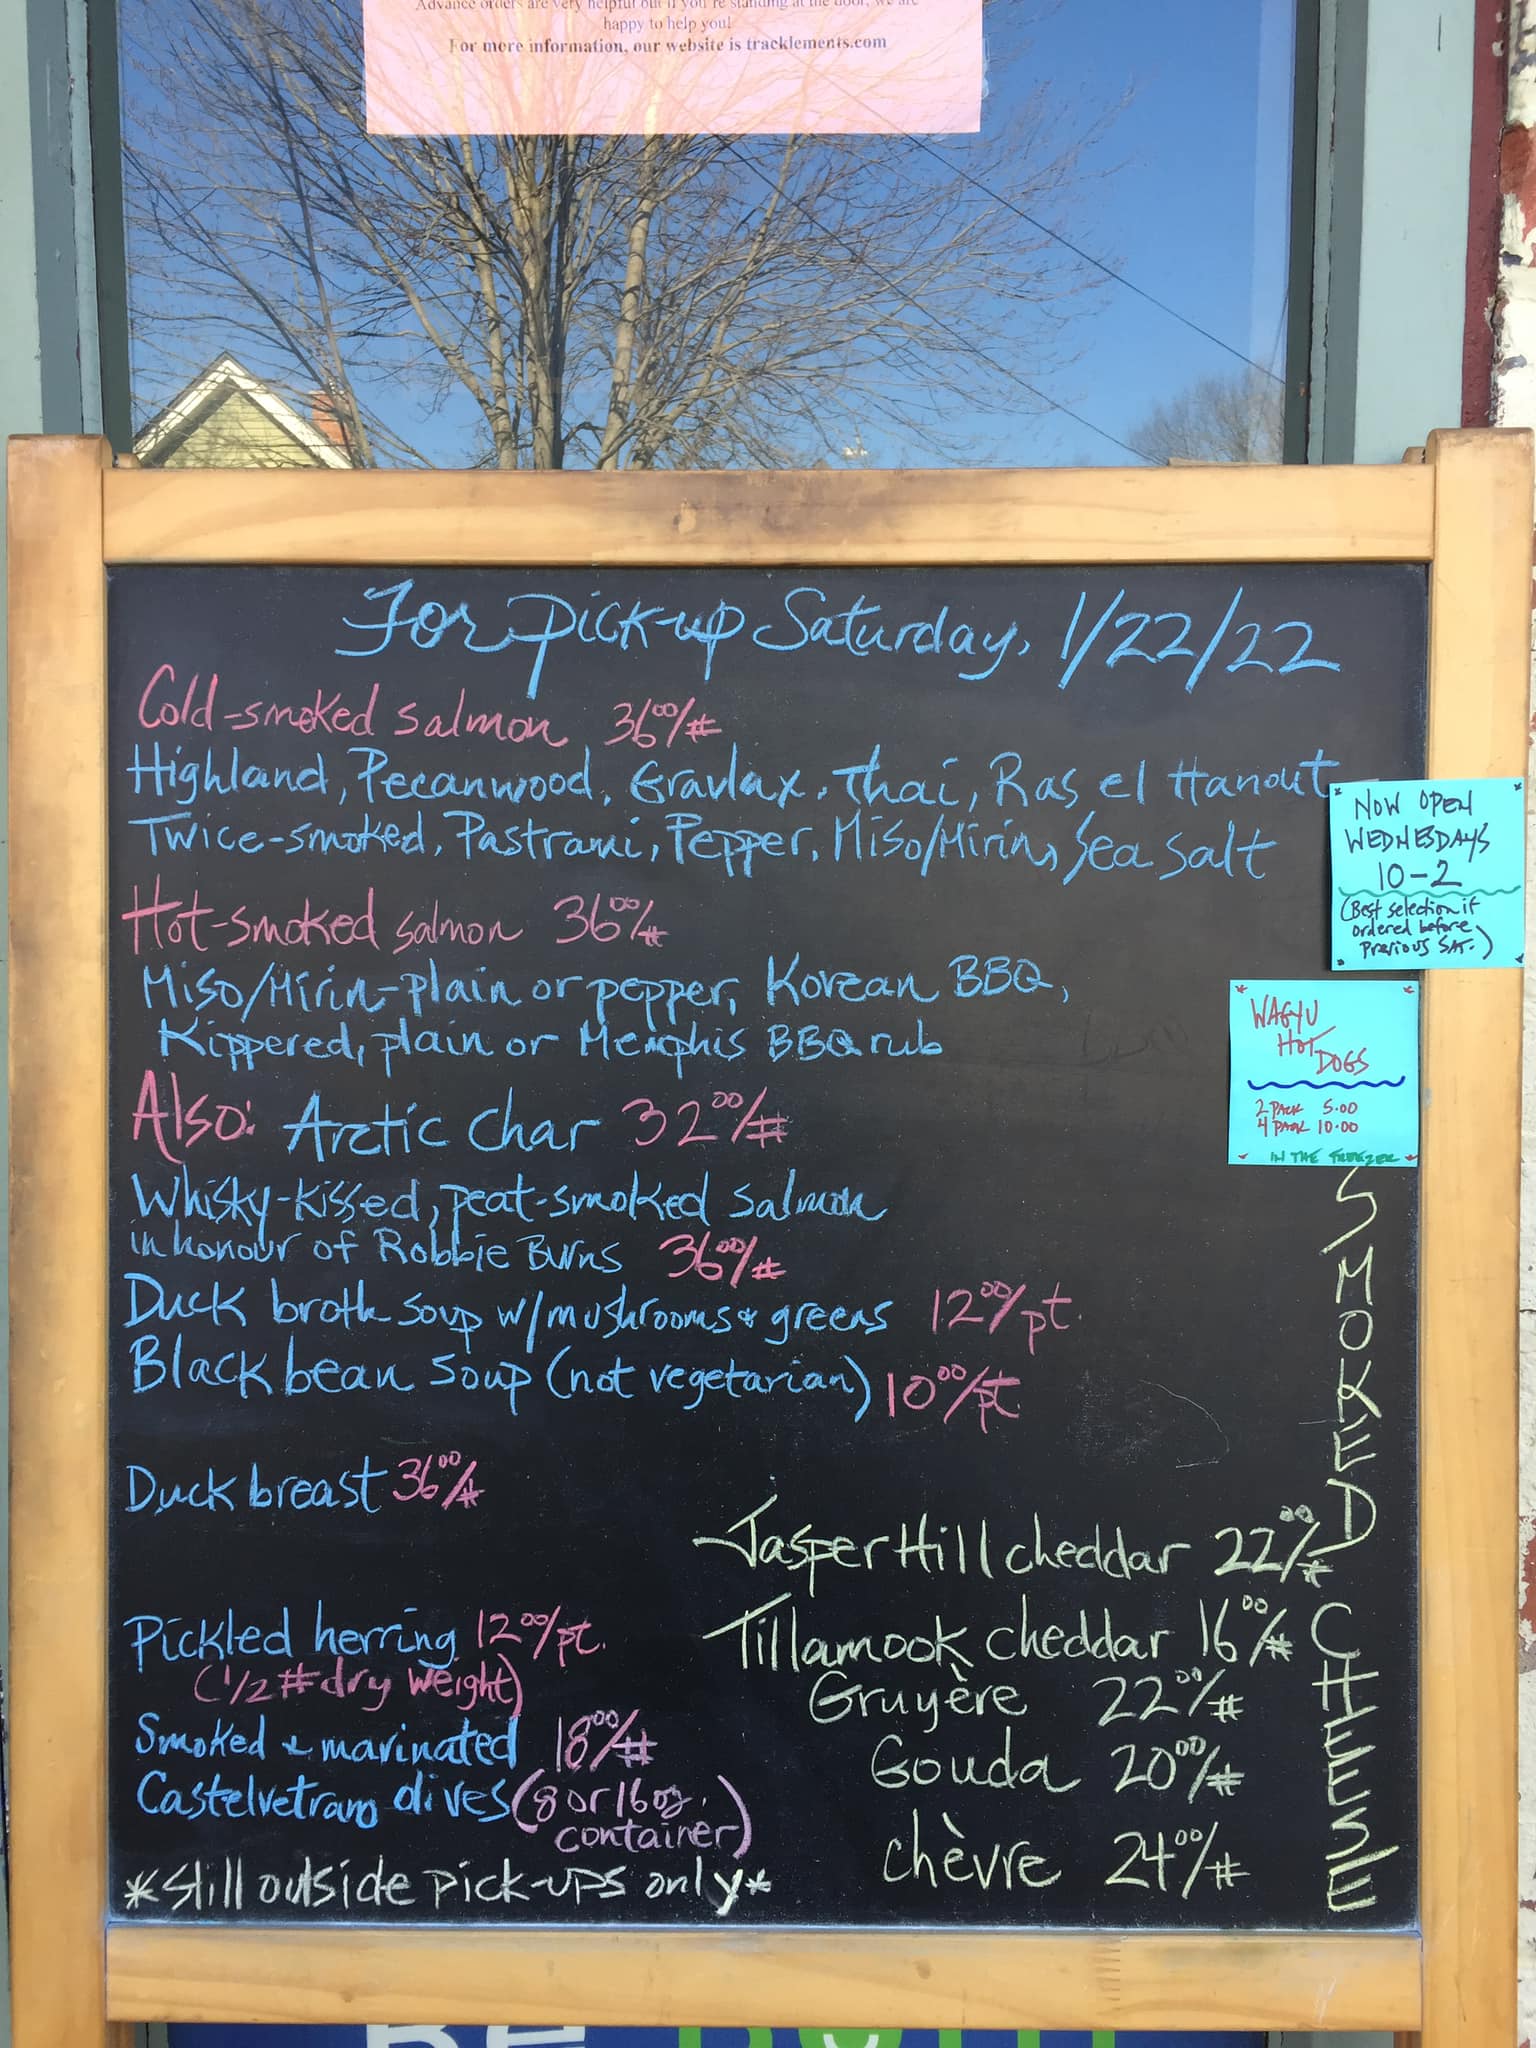 Advance orders are very helpful but if you're standing at the door, we are
happy to help you!
For more information, our website is tracklements.com
For pick-up Saturday, 1/22/22
Cold-smoked salmon 36⁰⁰/#
Highland, Pecanwood, Gravlax, Thai, Ras el Hanout
Twice-smoked, Pastrami, Pepper, Miso/Mirin, Sea salt
Hot-smoked salmon 36⁰⁰/#
Miso/Mirin-plain or pepper, Korean BBQ,
Kippered, plain or Memphis BBQ rub
Also: Arctic char 32⁰⁰/#
Whisky-kissed, peat-smoked salmon
in honour of Robbie Burns 36⁰⁰/#
Duck broth soup w/mushrooms & greens 12⁰⁰/pt.
Black bean soup (not vegetarian) 10⁰⁰/pt.
Duck breast 36⁰⁰/#
Pickled herring 12⁰⁰/pt.
(1/2 # dry weight)
Smoked & marinated 18⁰⁰/#
Castelvetrano olives (8 or 16 oz.
container)
*Still outside pick-ups only*
NOW OPEN
WEDNESDAYS
10-2
(Best selection if
ordered before
previous SAT.)
WAGYU
HOT
DOGS
2 PACK 5.00
4 PACK 10.00
IN THE FREEZER
SMOKED CHEESE
Jasper Hill cheddar 22⁰⁰/#
Tillamook cheddar 16⁰⁰/#
Gruyère 22⁰⁰/#
Gouda 20⁰⁰/#
chèvre 24⁰⁰/#